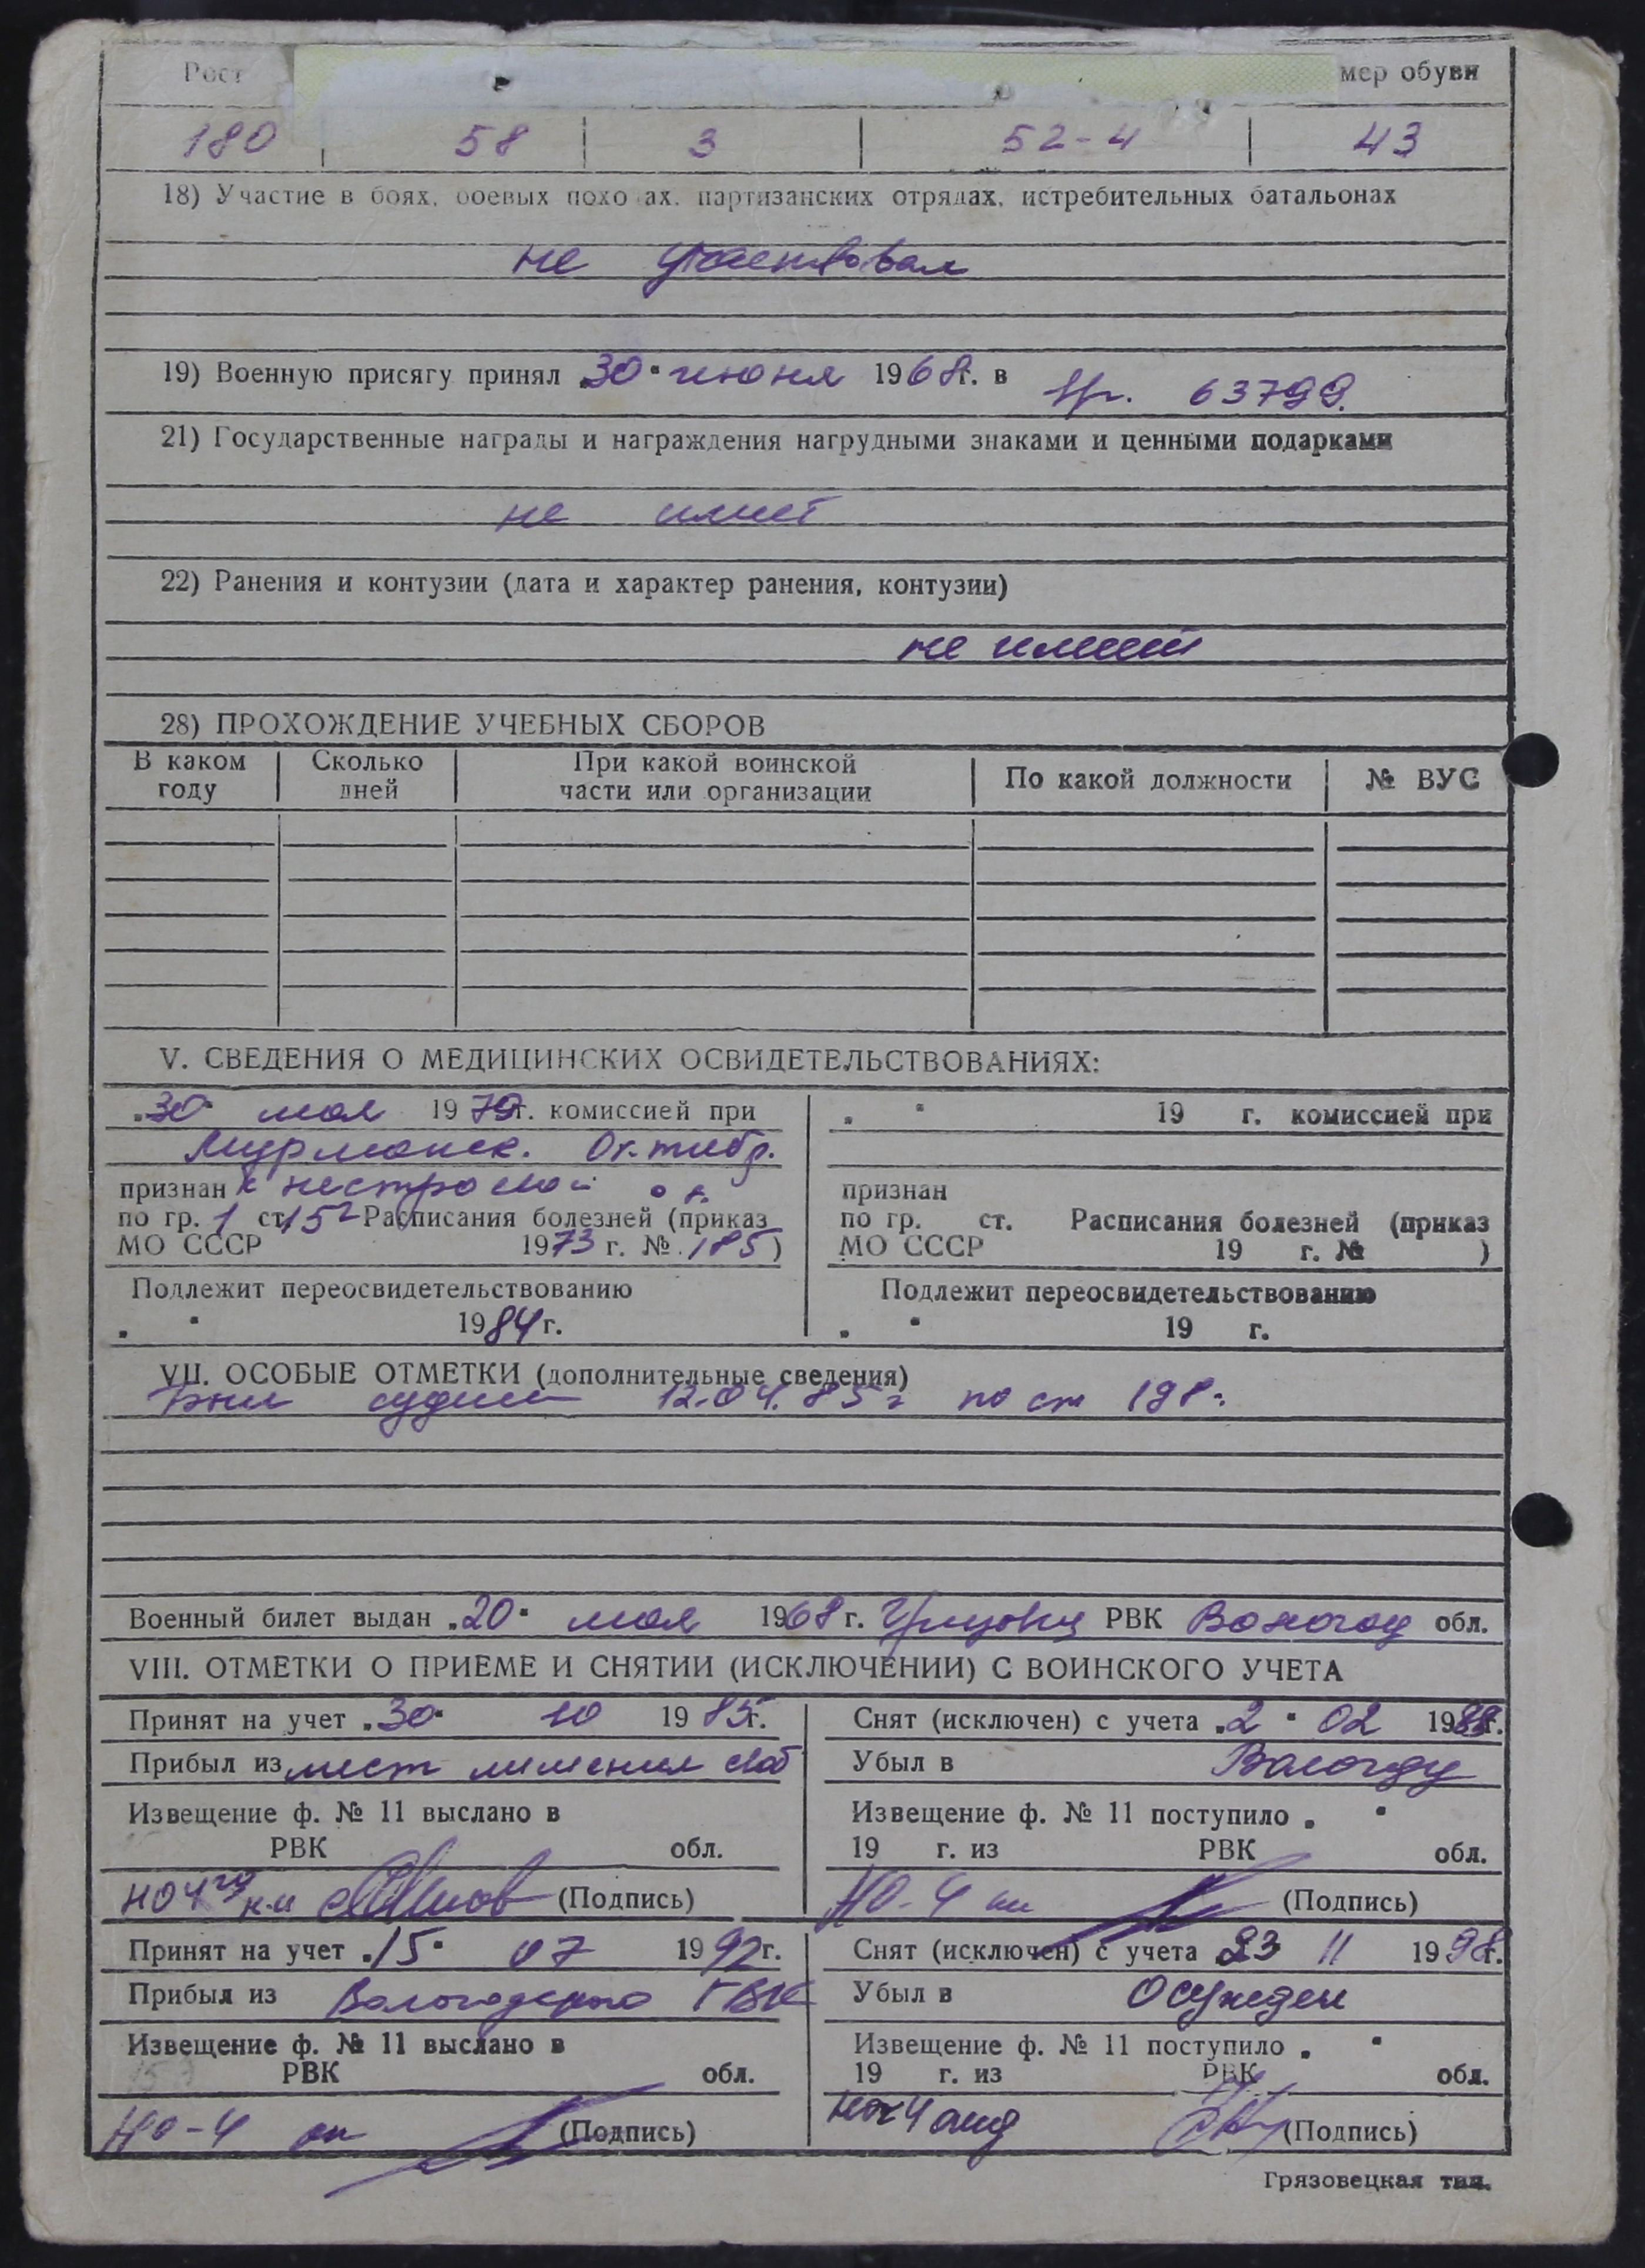 Рост мер обуви
180 58 3 52-4 43
18) Участие в боях, боевых похо ах, партизанских отрядах, истребительных батальонах
не участвовал
19) Военную присягу принял „30" июня 1968 г. в 63799.
21) Государственные награды и награждения нагрудными знаками и ценными подарками
не имеет
22) Ранения и контузии (дата и характер ранения, контузии)
не имеет
28) ПРОХОЖДЕНИЕ УЧЕБНЫХ СБОРОВ
В каком году Сколько дней При какой воинской части или организации По какой должности № ВУС
V. СВЕДЕНИЯ О МЕДИЦИНСКИХ ОСВИДЕТЕЛЬСТВОВАНИЯХ:
„30" мая 1979 г. комиссией при
Мурманск. Октябр.
признан к нестроевой
по гр. 1 ст. 152 Расписания болезней (приказ
МО СССР 1973 г. № 185)
Подлежит переосвидетельствованию
„ " 1984 г.
„ " 19 г. комиссией при
признан
по гр. ст. Расписания болезней (приказ
МО СССР 19 г. № )
Подлежит переосвидетельствованию
„ " 19 г.
VII. ОСОБЫЕ ОТМЕТКИ (дополнительные сведения)
Был судим 12.04.85 г по ст 198
Военный билет выдан „20" мая 1968 г. РВК Вологод обл.
VIII. ОТМЕТКИ О ПРИЕМЕ И СНЯТИИ (ИСКЛЮЧЕНИИ) С ВОИНСКОГО УЧЕТА
Принят на учет „30" 10 1985 г.
Прибыл из мест лишения своб
Извещение ф. № 11 выслано в
РВК обл.
НО4 (Подпись)
Снят (исключен) с учета „2" 02 1988 г.
Убыл в Вологду
Извещение ф. № 11 поступило „ "
19 г. из РВК обл.
НО-4 (Подпись)
Принят на учет „15" 07 1992 г.
Прибыл из Вологодского ГВК
Извещение ф. № 11 выслано в
РВК обл.
НО-4 (Подпись)
Снят (исключен) с учета 23 11 1998 г.
Убыл в Осужден
Извещение ф. № 11 поступило „ "
19 г. из РВК обл.
(Подпись)
Грязовецкая тип.